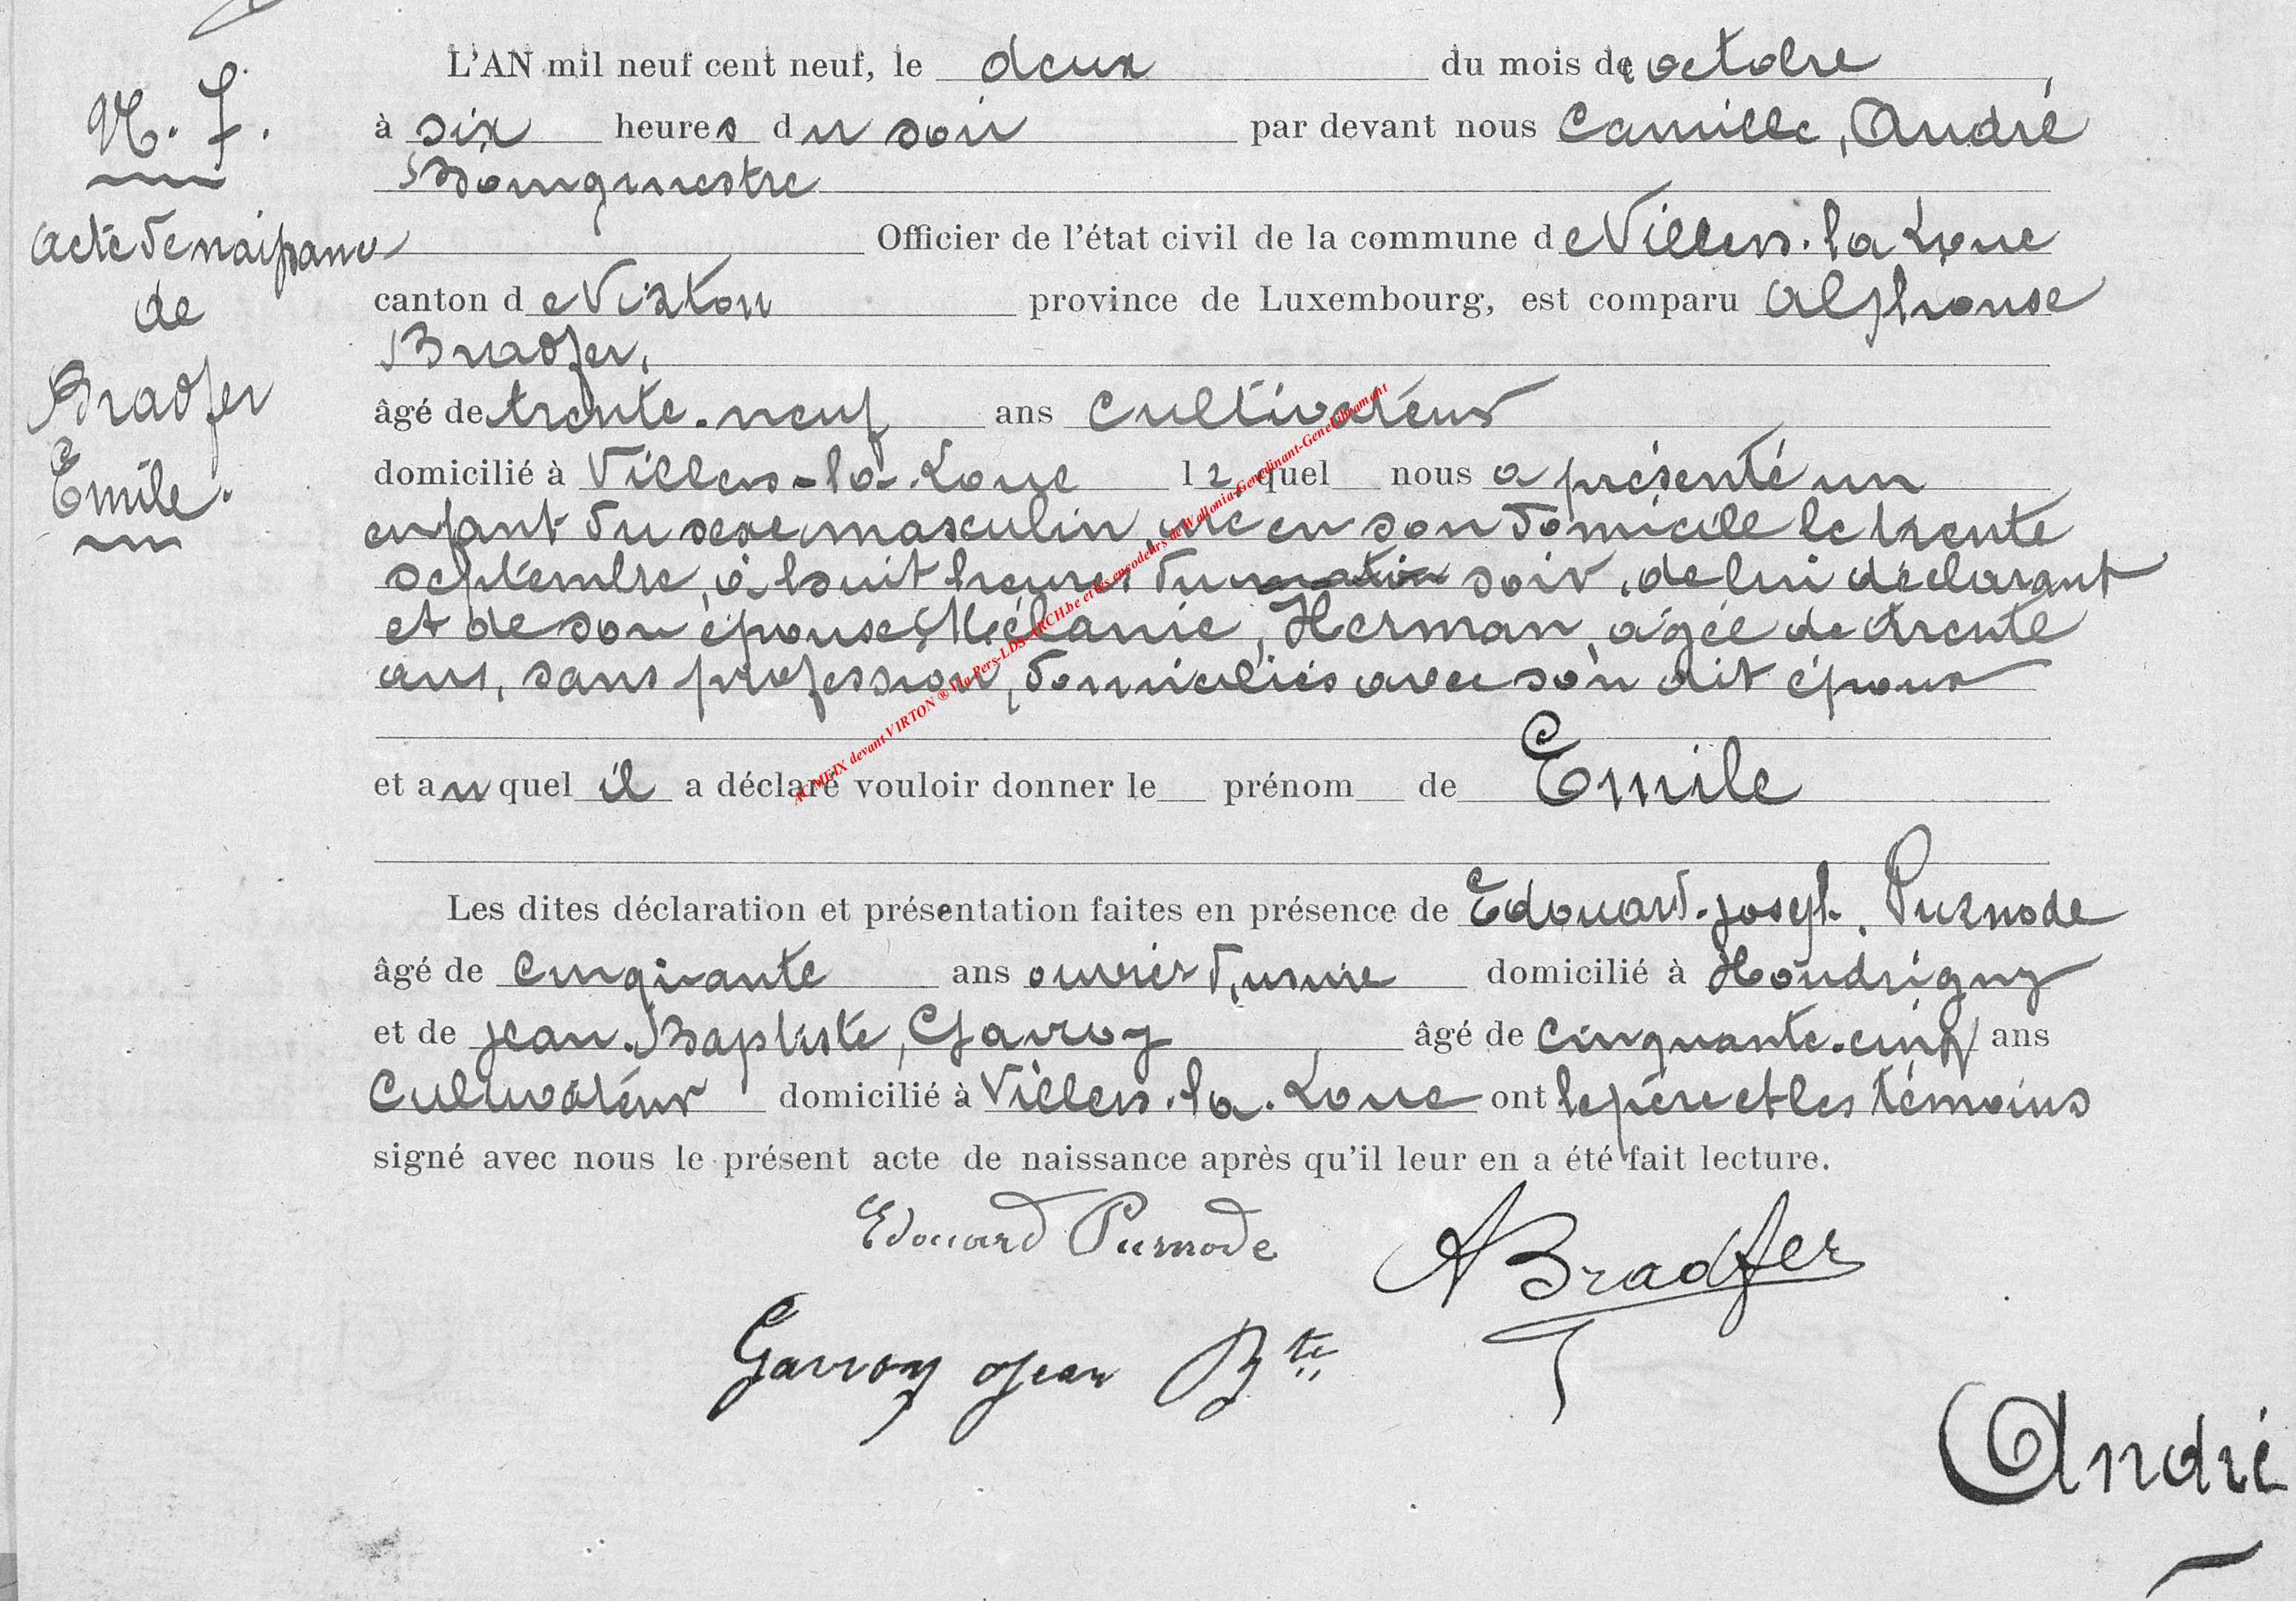 N. 7.
Acte de naissance
de
Bradfer
Emile.
L'AN mil neuf cent neuf, le deux du mois de octobre,
à six heures du soir par devant nous Camille, André
Bourgmestre
Officier de l'état civil de la commune de Villers-la-Loue
canton de Virton province de Luxembourg, est comparu Alphonse
Bradfer,
âgé de trente-neuf ans cultivateur
domicilié à Villers-la-Loue lequel nous a présenté un
enfant du sexe masculin, né en son domicile le trente
septembre, à huit heures du matin soir, de lui déclarant
et de son épouse Mélanie, Herman, âgée de trente
ans, sans profession, domiciliés avec son dit époux
et au quel il a déclaré vouloir donner le prénom de Emile
Les dites déclaration et présentation faites en présence de Edouard-Joseph, Purnode
âgé de cinquante ans ouvrier d'usine domicilié à Houdrigny
et de Jean-Baptiste, Gavroy âgé de cinquante-cinq ans
cultivateur domicilié à Villers-la-Loue ont le père et les témoins
signé avec nous le présent acte de naissance après qu'il leur en a été fait lecture.
Edouard Purnode
A Bradfer
Gavroy Jean Bte
André
AC MEIX devant VIRTON ® Via Pers-LDS-ARCH.be et les encodeurs de Wallonia-Genedinant-GeneLibramont